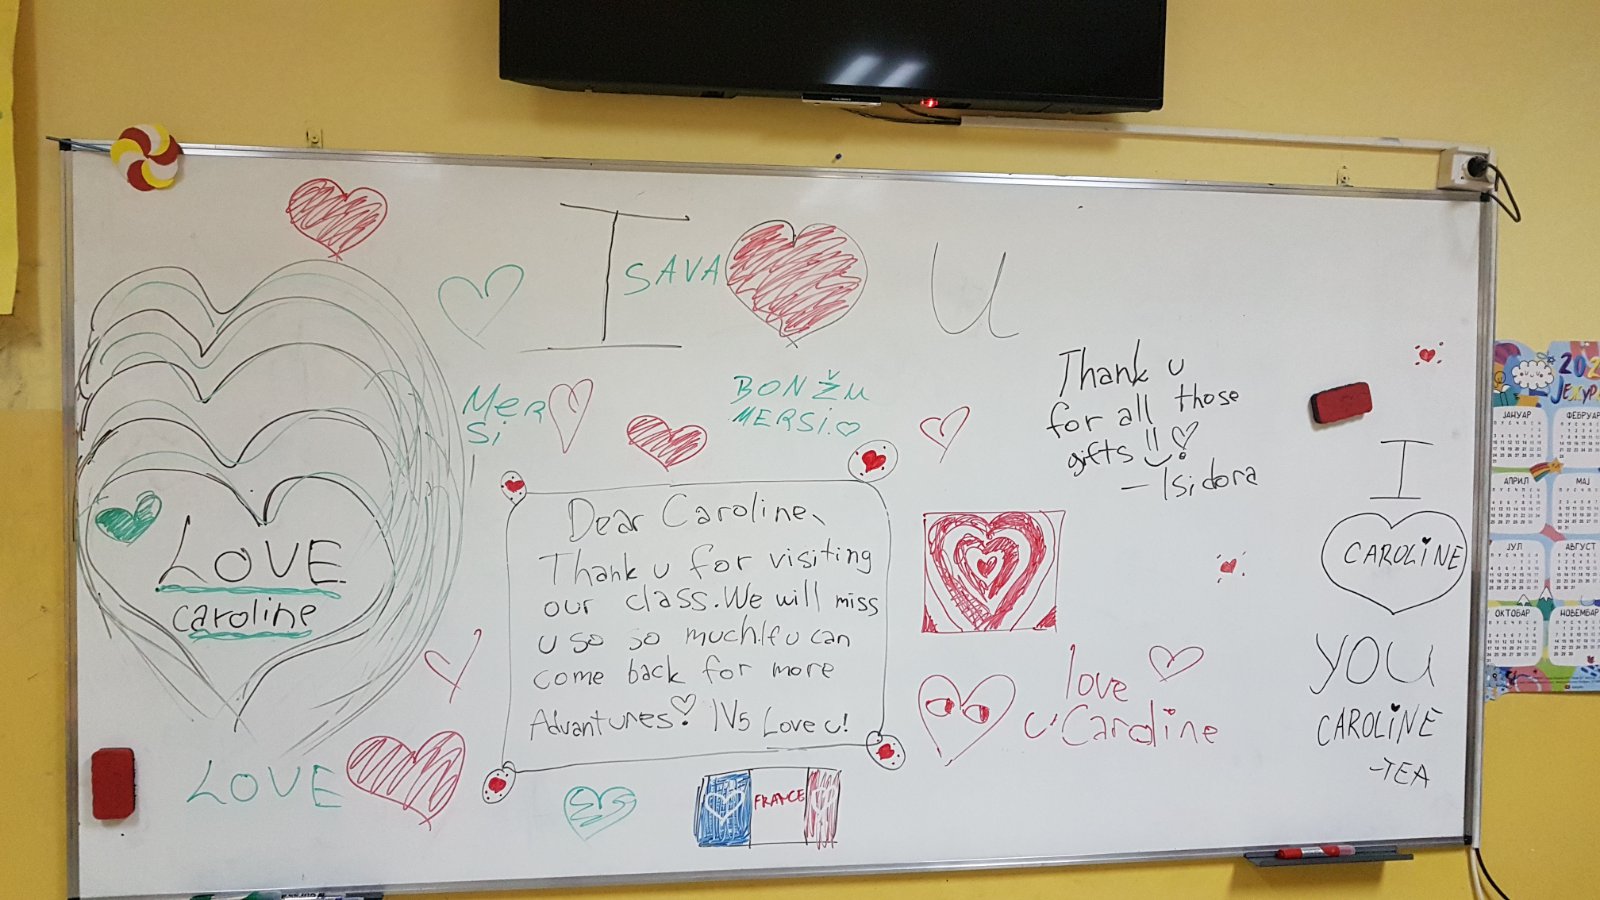 I
SAVA
U
MerSi
BONŽU
MERSI
Thank u
for all those
gifts!!
- Isidora
Dear Caroline,
Thank u for visiting
our class. We will miss
u so so much. If u can
come back for more
Advantures! IV5 Love u!
LOVE
caroline
LOVE
FRANCE
love
u Caroline
I
CAROLINE
YOU
CAROLINE
-TEA
202
ЈАНУАР
ФЕБРУАР
АПРИЛ
МАЈ
ЈУЛ
АВГУСТ
ОКТОБАР
НОВЕМБАР